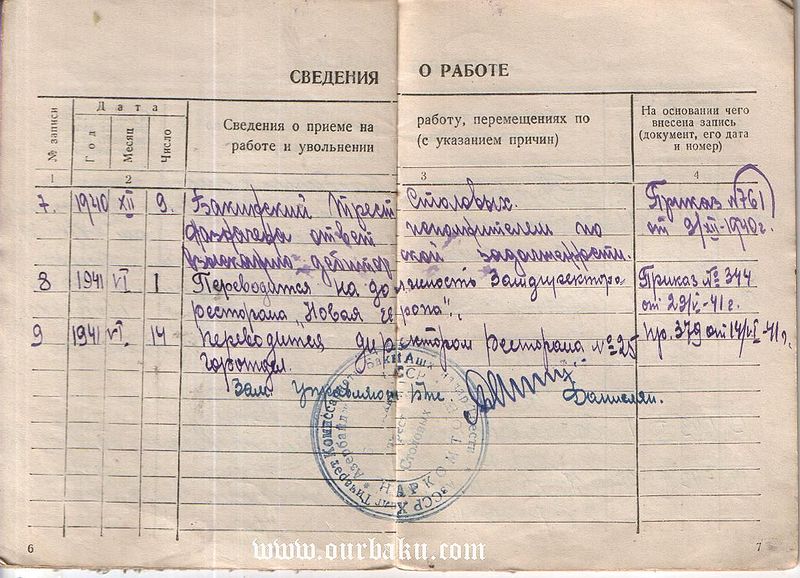 СВЕДЕНИЯ О РАБОТЕ
№ записи
Дата
Год
Месяц
Число
Сведения о приеме на работу, перемещениях по
работе и увольнении (с указанием причин)
На основании чего
внесена запись
(документ, его дата
и номер)
1 2 3 4
7. 1940 XII 9. Бакинский Трест Столовых. Приказ №761
ответ исполнителем по от 9/XII-1940г.
взысканию дебиторской задолженности.
8 1941 VI 1 Переводится на должность Замдиректора Приказ № 344
ресторана "Новая Европа". от 29/V-41г.
9 1941 VI 14 Переводится директором ресторана №25 Пр. 379 от 14/VI-41г.
Зам. Управляющ. Данielян.
НАРКОМТОРГ
6
7
www.ourbaku.com